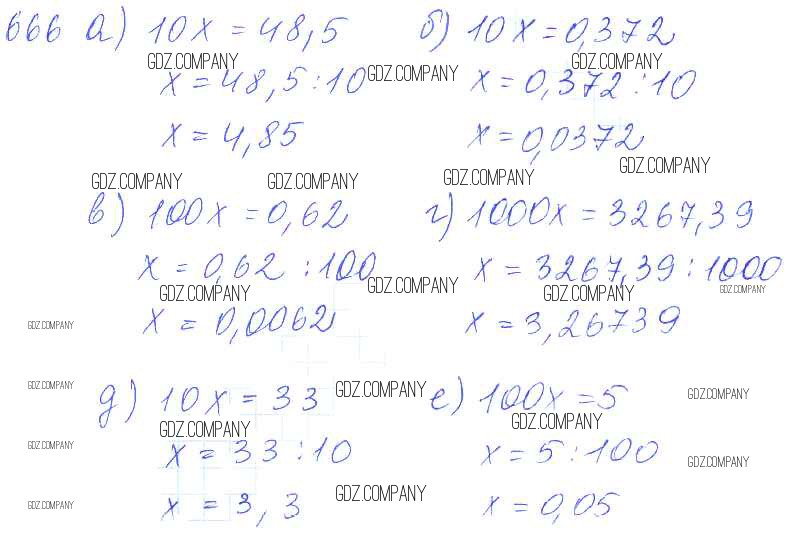 666 а) 10x = 48,5 б) 10x = 0,372
GDZ.COMPANY GDZ.COMPANY
x = 48,5 : 10 GDZ.COMPANY x = 0,372 : 10
x = 4,85 x = 0,0372
GDZ.COMPANY
GDZ.COMPANY GDZ.COMPANY GDZ.COMPANY
в) 100x = 0,62 г) 1000x = 3267,39
x = 0,62 : 100 x = 3267,39 : 1000
GDZ.COMPANY GDZ.COMPANY GDZ.COMPANY GDZ.COMPANY
x = 0,0062 x = 3,26739
GDZ.COMPANY
GDZ.COMPANY д) 10x = 33 GDZ.COMPANY е) 100x = 5 GDZ.COMPANY
GDZ.COMPANY GDZ.COMPANY
GDZ.COMPANY x = 33 : 10 x = 5 : 100 GDZ.COMPANY
GDZ.COMPANY x = 3,3 GDZ.COMPANY x = 0,05